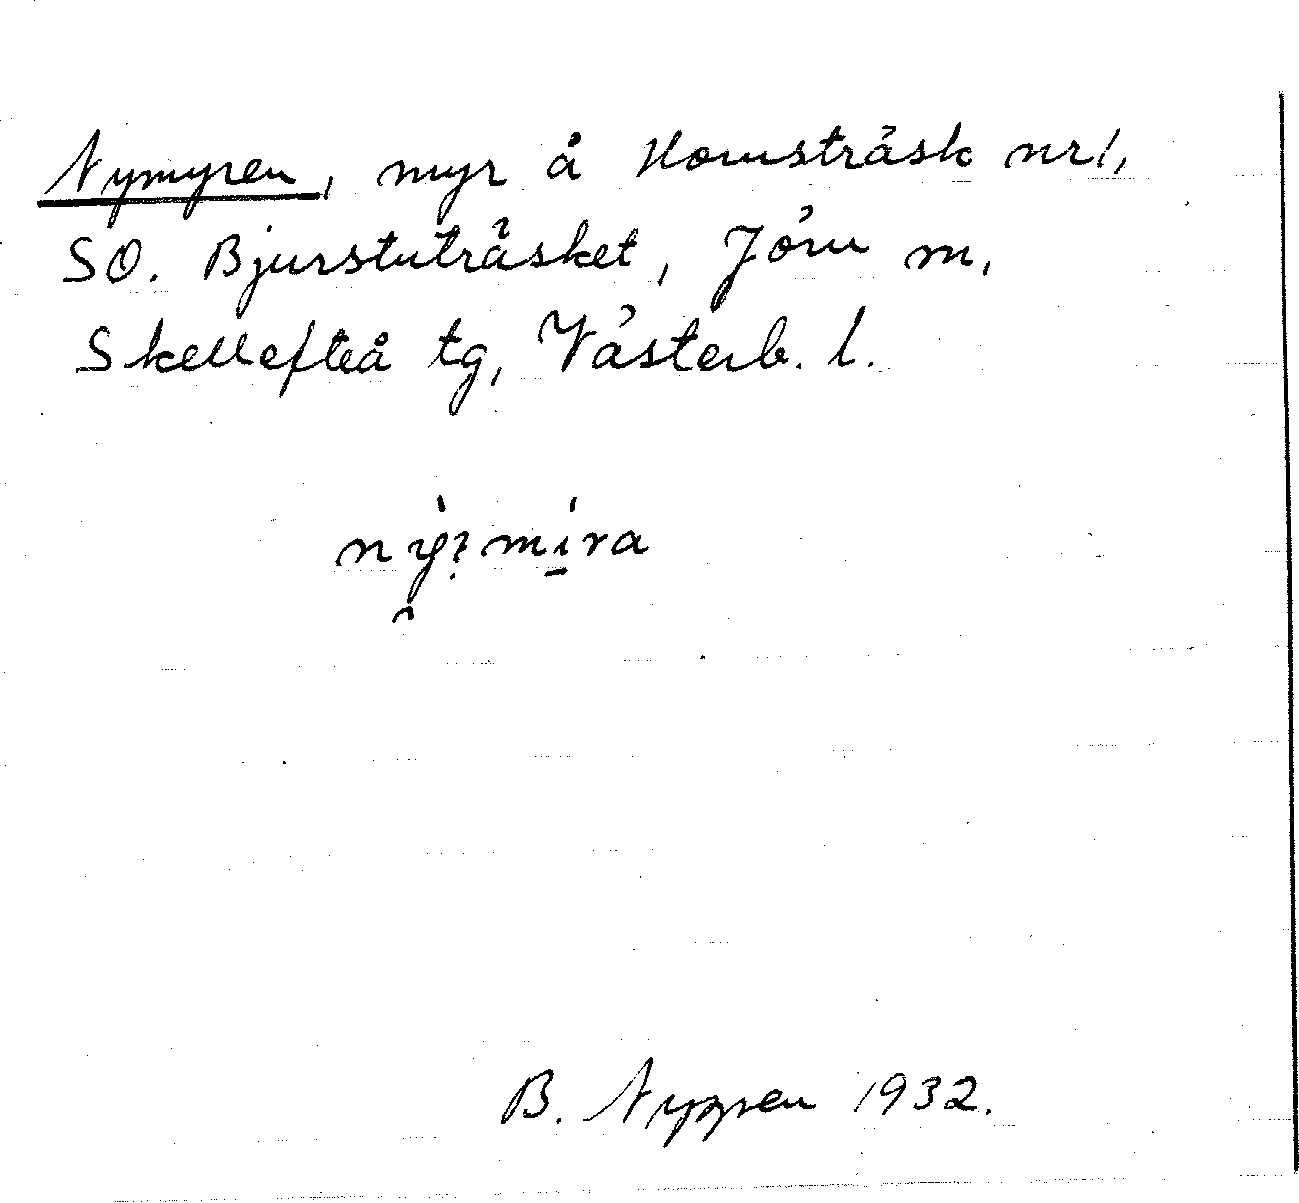 Nymyren, myr å Hornsträsk nr 1,
SO. Bjurstuträsket, Jörn sn,
Skellefteå tg, Västerb. l.
B. Nygren 1932.